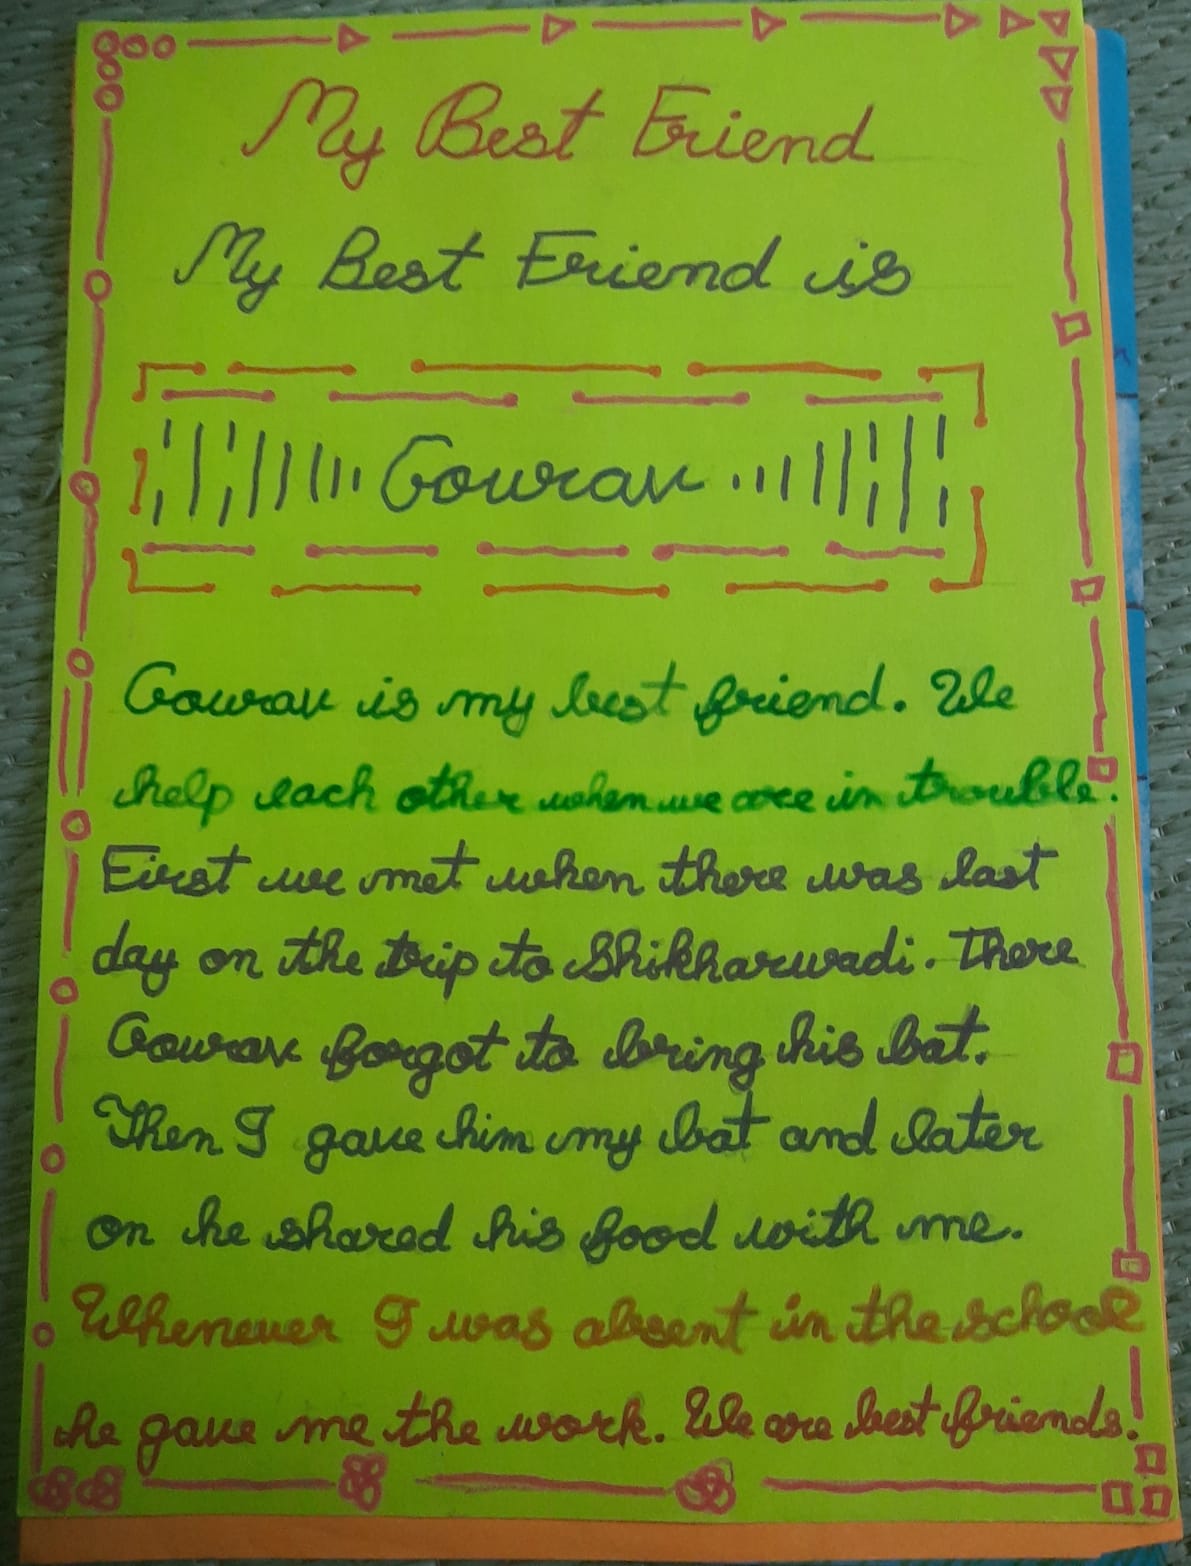 My Best Friend
My Best Friend is
Gourav
Gourav is my best friend. We
help each other when we are in trouble.
First we met when there was last
day on the trip to Shikharwadi. There
Gourav forgot to bring his bat.
Then I gave him my bat and later
on he shared his food with me.
Whenever I was absent in the school
he gave me the work. We are best friends.